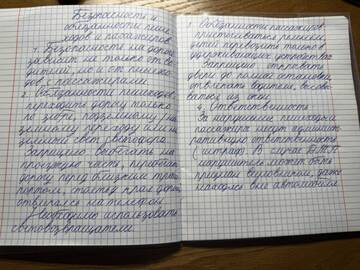 Безопасность и
обязанности пеше-
ходов и пассажиров.
1. Безопасность на дороге
зависит не только от во-
дителя, но и от пешехо-
дов с пассажирами.
2. Обязанности пешеходов:
переходить дорогу только
по зебре, подземному / над-
земному переходу или на
зеленый свет светофора.
Запрещено: выбегать на
проезжую часть, перебегать
дорогу перед близким транс-
портом, стоять у края дороги,
отвлекаться на телефон.
Необходимо использовать
световозвращатели.
3. Обязанности пассажиров:
пристегиваться ремнями,
детей перевозить только в
удерживающих устройствах.
Запрещено: открывать
двери до полной остановки,
отвлекать водителя, высовы-
ваться из окон.
4. Ответственность
За нарушение пешеходы и
пассажиры несут админист-
ративную ответственность
(штраф). В случае ДТП
нарушитель может быть
признан виновным, даже
находясь вне автомобиля